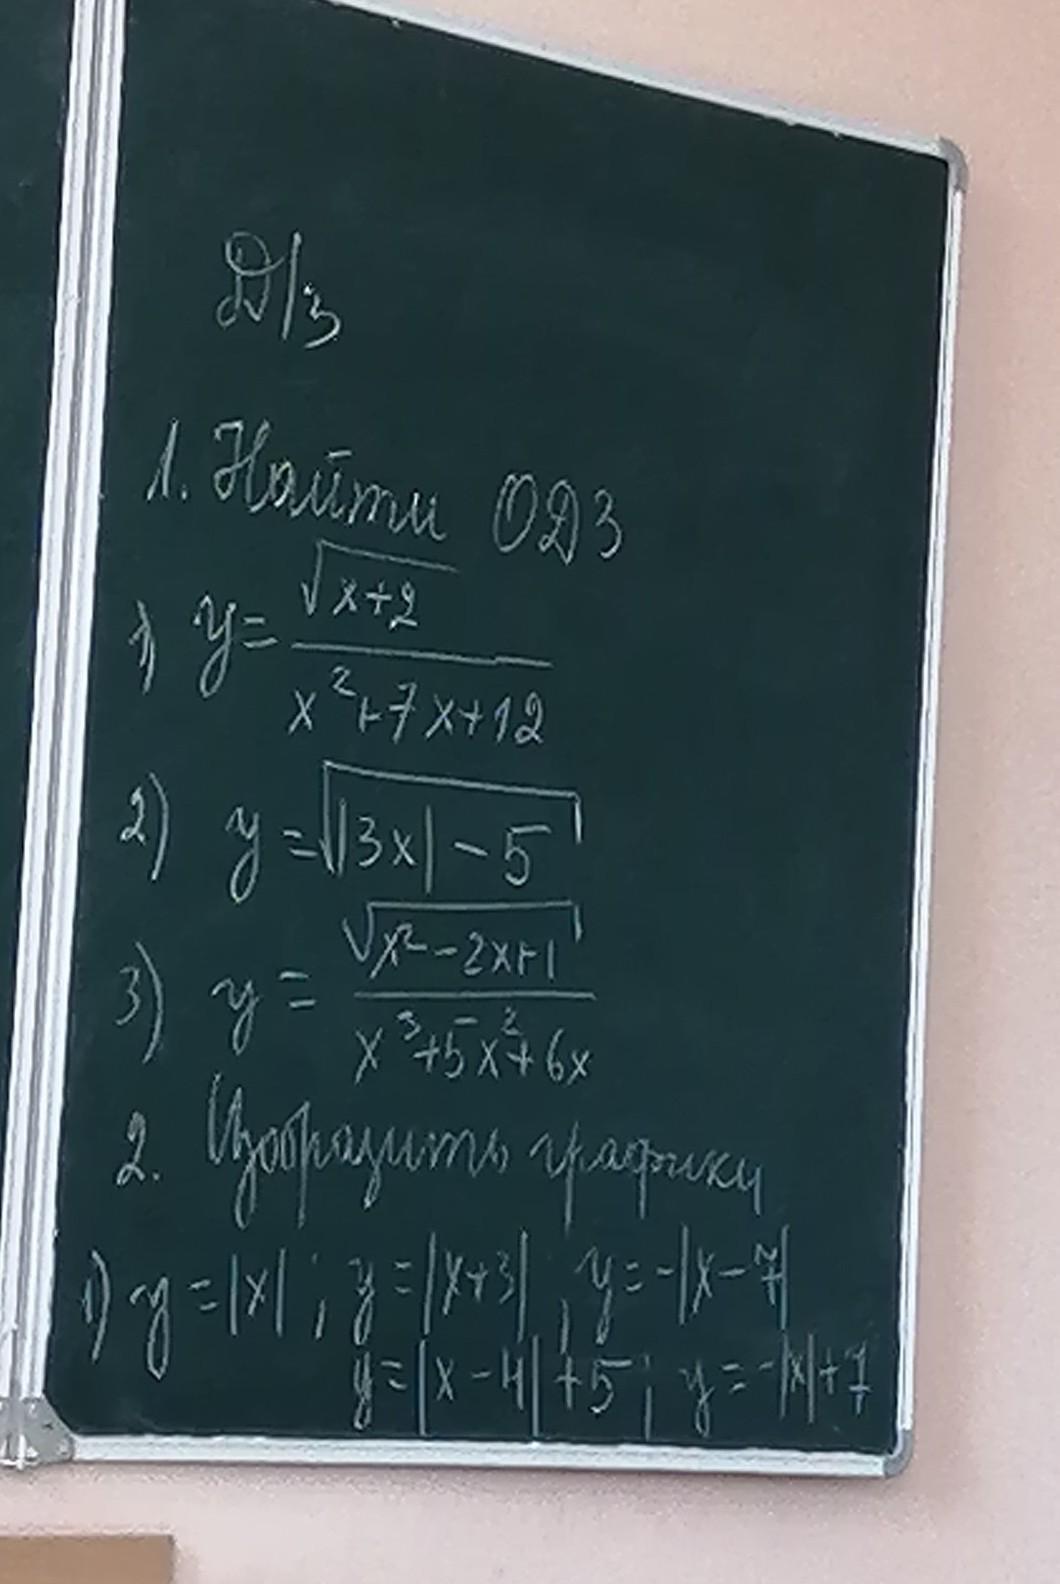 Д/з
1. Найти ОДЗ
1) y = √(x+2) / (x²+7x+12)
2) y = √(|3x| - 5)
3) y = √(x²-2x+1) / (x³+5x²+6x)
2. Изобразить графики
1) y = |x| ; y = |x+3| , y = -|x-7|
y = |x-4| + 5 ; y = -|x|+7